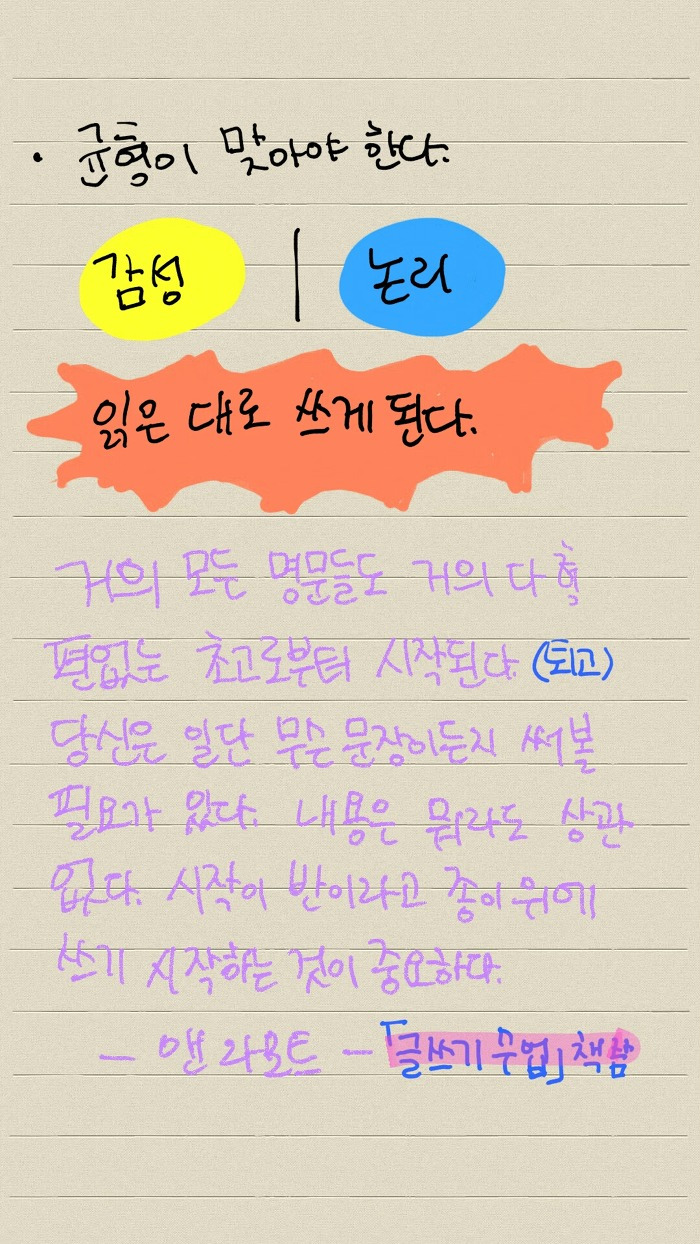 · 균형이 맞아야 한다.
감성 | 논리
읽은 대로 쓰게 된다.
거의 모든 명문들도 거의 다 형
편없는 초고로부터 시작된다. (퇴고)
당신은 일단 무슨 문장이든지 써볼
필요가 있다. 내용은 뭐라도 상관
없다. 시작이 반이라고 종이 위에
쓰기 시작하는 것이 중요하다.
- 앤 라모트 - 「글쓰기 수업」 책